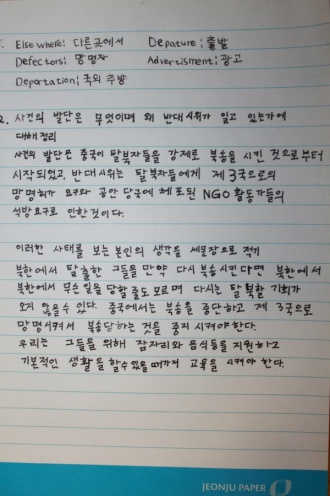 1. Elsewhere; 다른곳에서 Depature; 출발
Defectors; 망명자 Advertisment; 광고
Deportation; 국외 추방
2. 사건의 발단은 무엇이며 왜 반대시위가 일고 있는가에
대해정리
사건의 발단은 중국이 탈북자들을 강제로 북송을 시킨 것으로부터
시작되었고, 반대시위는 탈북자들에게 제3국으로의
망명허가 요구와 공안 당국에 체포된 NGO활동가들의
석방요구로 인한것이다.
이러한 사태를 보는 본인의 생각을 세문장으로 적기
북한에서 탈출한 그들을 만약 다시 북송시킨다면 북한에서
북한에서 무슨 일을 당할 줄도 모르며 다시는 탈북할 기회가
오지 않을수 있다. 중국에서는 북송을 중단하고 제 3국으로
망명시켜서 북송당하는 것을 중지 시켜야한다.
우리는 그들을 위해 잠자리와 음식등을 지원하고
기본적인 생활을 할수있을때까지 교육을 시켜야 한다.
JEONJU PAPER